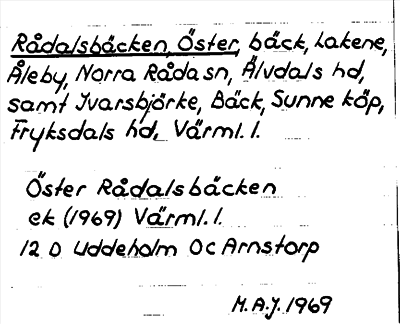 Rådalsbäcken, Öster, bäck, Lakene,
Åleby, Norra Råda sn, Älvdals hd,
samt Ivarsbjörke, Bäck, Sunne köp,
Fryksdals hd, Värml. l.
Öster Rådalsbäcken
ek (1969) Värml. l.
12 D Uddeholm Oc Arnstorp
M.A.J. 1969